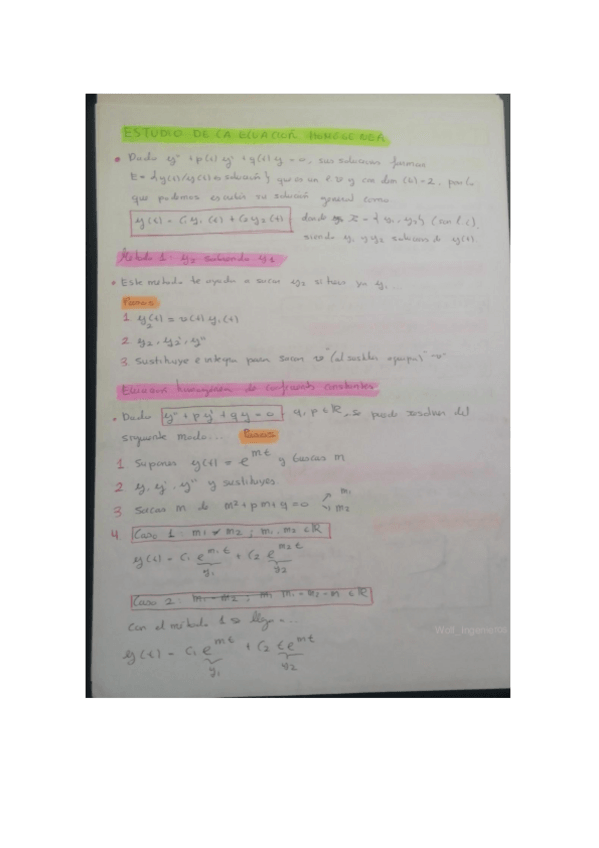 ESTUDIO DE LA ECUACIÓN HOMOGENEA
• Dada y'' + p(t) y' + q(t) y = 0, sus soluciones forman
E = {y(t)/y(t) es solución} que es un e.v y con dim (E) = 2, por lo
que podemos escribir su solución general como
y(t) = C₁ y₁(t) + C₂ y₂(t) donde = {y₁, y₂} (son l.i),
siendo y₁ y y₂ solucions de y(t)
Método 1. y₂ sabiendo y₁
• Este método te ayuda a sacar y₂ si tienes ya y₁...
Pasos
1. y₂(t) = v(t) y₁(t)
2. y₂, y₂', y₂''
3. Sustituye e integra para sacar v
Ecuacion homogenea de coeficientes constantes
• Dada y'' + p y' + q y = 0 q, p ∈ ℝ, se puede resolver del
siguiente modo... Pasos
1 Supones y(t) = e^mt y buscas m
2 y, y', y'' y sustituyes
3 Sacas m de m² + pm + q = 0 m₁ m₂
4. Caso 1: m₁ ≠ m₂ ; m₁, m₂ ∈ ℝ
y(t) = C₁ e^m₁t + C₂ e^m₂t
y₁ y₂
Caso 2: m₁ = m₂ ; m₁ m₁ = m₂ = m ∈ ℝ
Con el método 1 llego...
y(t) = C₁ e^mt + C₂ t e^mt
y₁ y₂
Wolf_Ingenieros